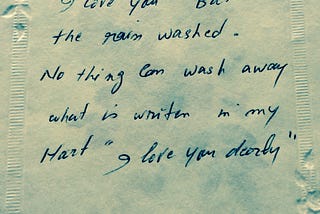 I love you" But
the rain washed.
No thing Can wash away
what is writen in my
Hart "I love you dearly"